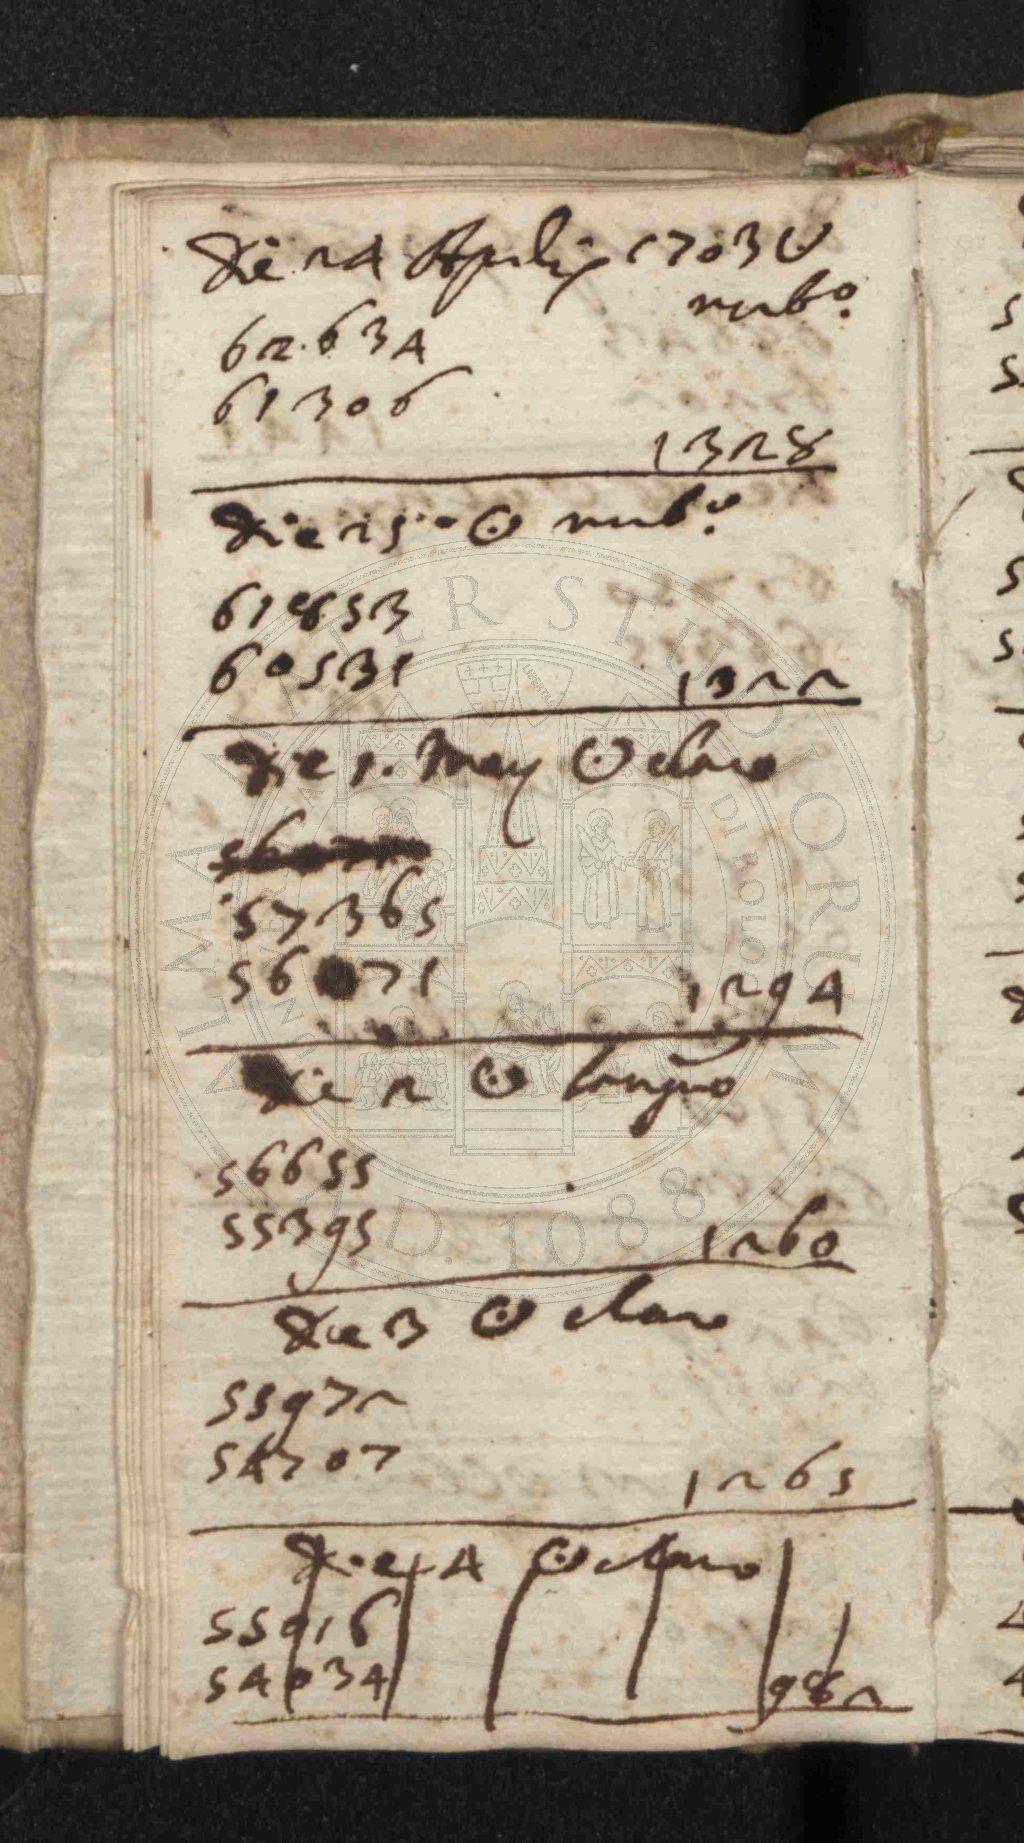 Die 24 Aprilis 1703 ☉
nub.º
62.634
61306
1328
Die 25 · ☉ nub.º
61853
60531
1322
Die 1. May ☉ claro
57365
56071
1294
Die 2 ☉ languo
56655
55395
1260
Die 3 ☉ claro
55972
54707
1265
Die 4 ☉ claro
55016
54034
982
ALMA MATER STUDIORUM
A.D. 1088